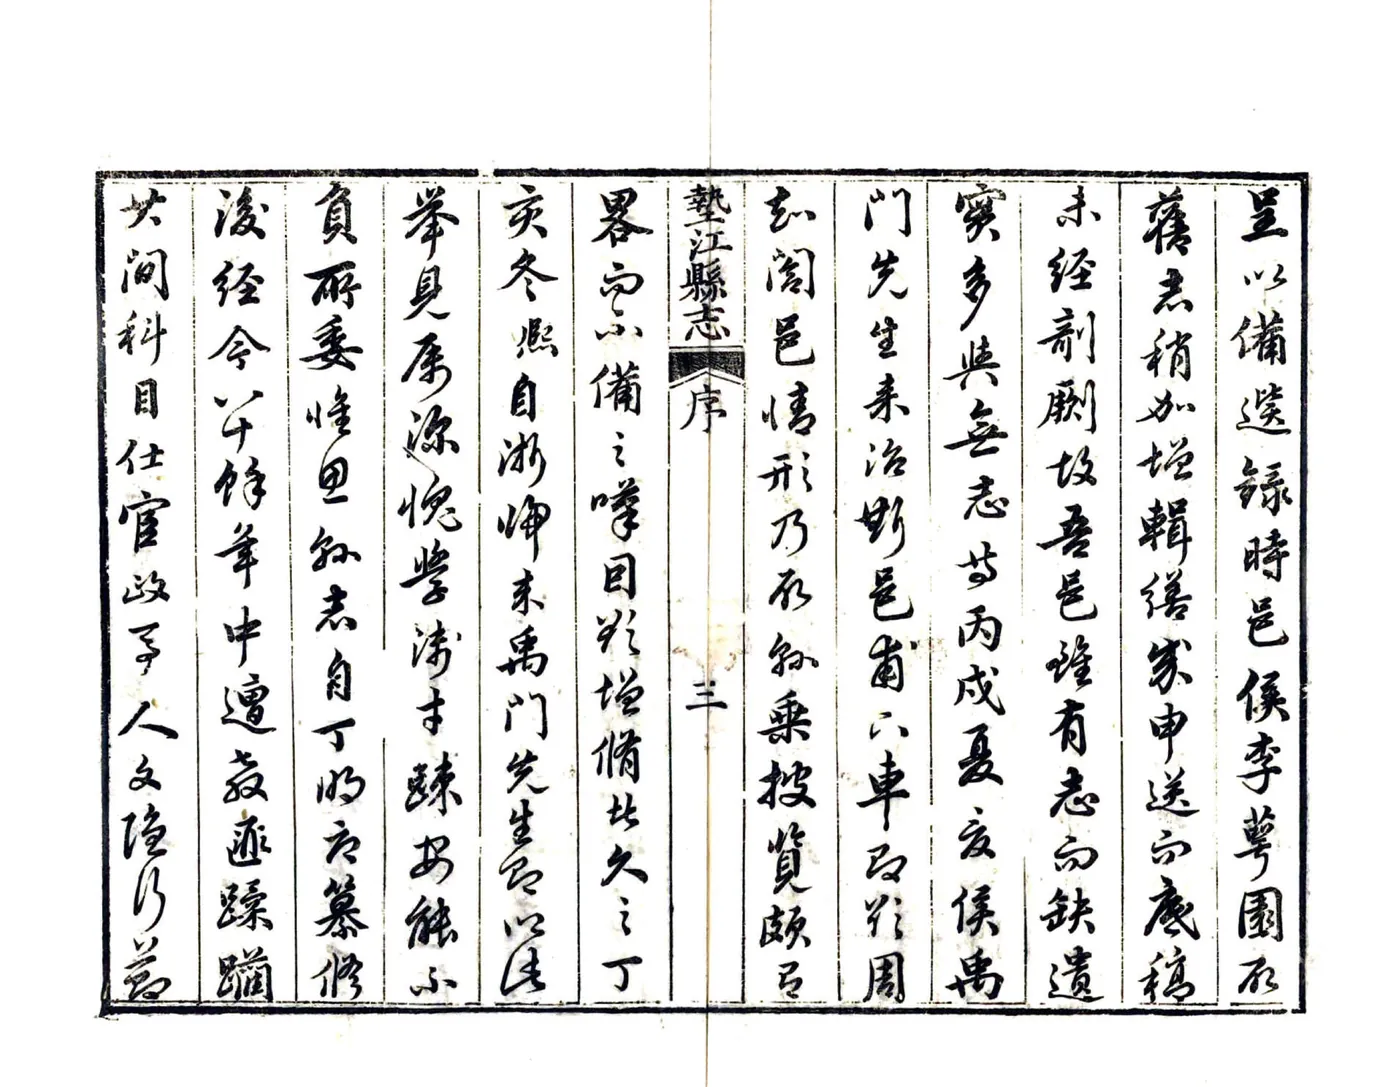 呈以備選錄時邑侯李蕚園取
舊志稍加增輯繕成申送而底稿
未經剞劂故吾邑雖有志而缺遺
實多與無志等丙戌夏夏侯禹
門先生來治斯邑甫下車即欲周
知閤邑情形乃取縣乘披覽頗有
墊江縣志 序 三
畧而不備之嘆因欲增脩者久之丁
亥冬熙自浙歸來禹門先生即以此
舉見属深愧學淺才疎安能不
負所委惟思縣志自丁明府纂修
後經今八十餘年中遭教匪蹂躪
其間科目仕宦政事人文隱行節